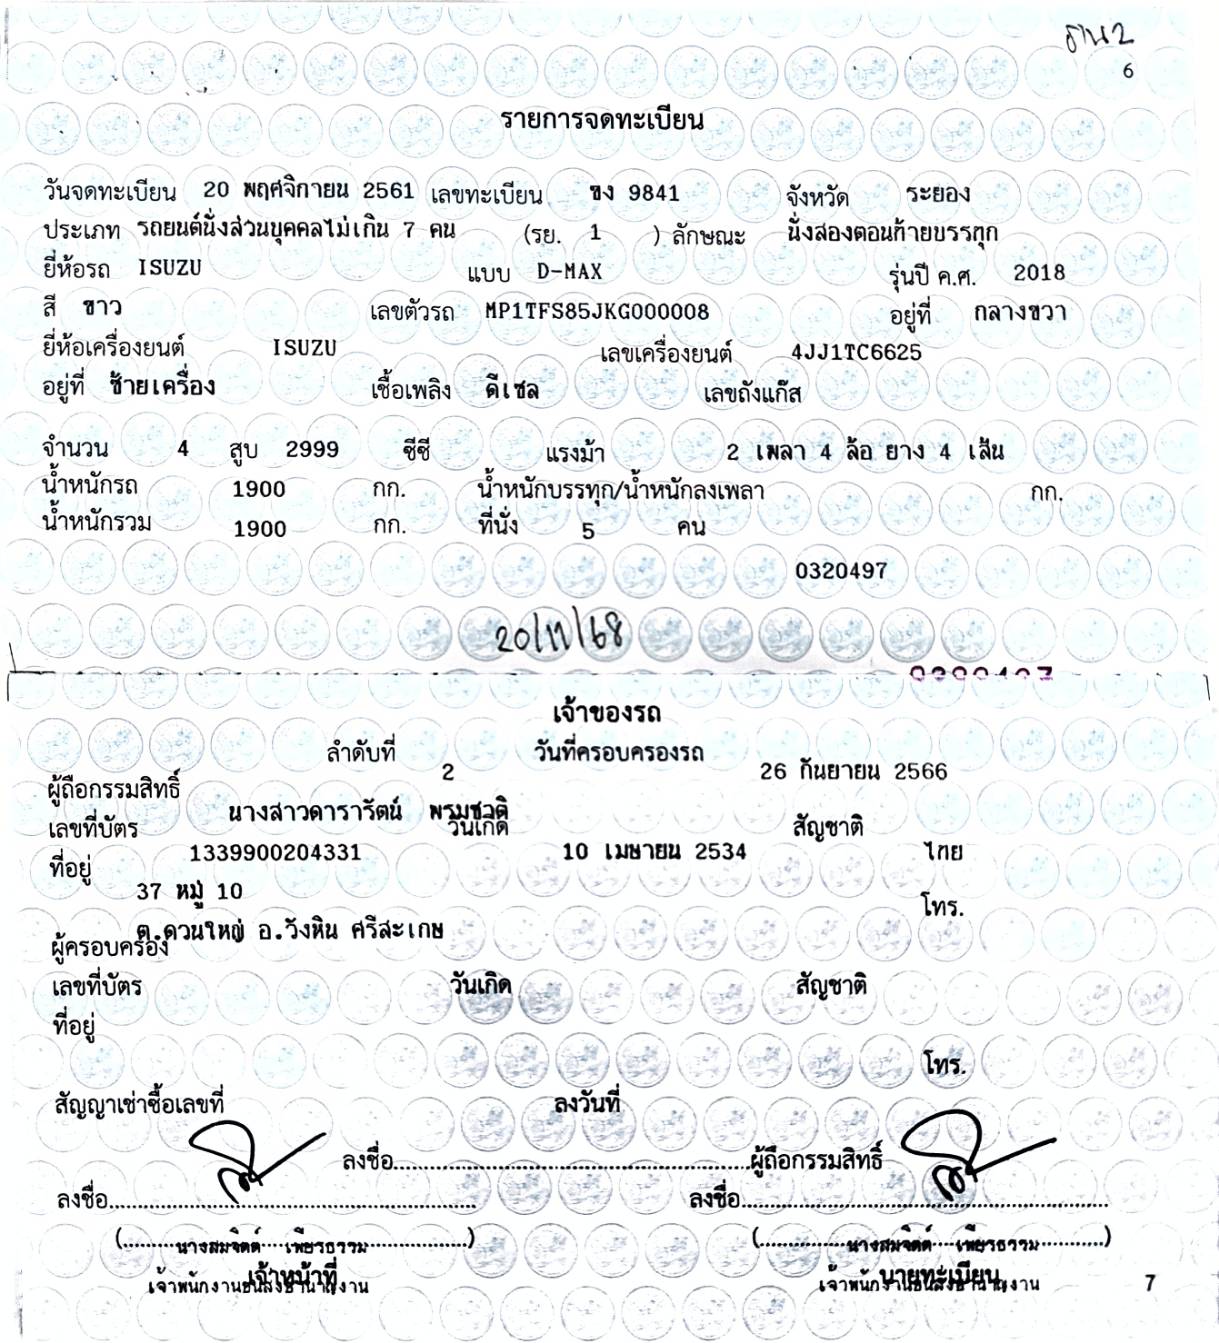 ธน2
6
รายการจดทะเบียน
วันจดทะเบียน 20 พฤศจิกายน 2561 เลขทะเบียน ขง 9841 จังหวัด ระยอง
ประเภท รถยนต์นั่งส่วนบุคคลไม่เกิน 7 คน (รย. 1 ) ลักษณะ นั่งสองตอนท้ายบรรทุก
ยี่ห้อรถ ISUZU แบบ D-MAX รุ่นปี ค.ศ. 2018
สี ขาว เลขตัวรถ MP1TFS85JKG000008 อยู่ที่ กลางขวา
ยี่ห้อเครื่องยนต์ ISUZU เลขเครื่องยนต์ 4JJ1TC6625
อยู่ที่ ซ้ายเครื่อง เชื้อเพลิง ดีเซล เลขถังแก๊ส
จำนวน 4 สูบ 2999 ซีซี แรงม้า 2 เพลา 4 ล้อ ยาง 4 เส้น
น้ำหนักรถ 1900 กก. น้ำหนักบรรทุก/น้ำหนักลงเพลา กก.
น้ำหนักรวม 1900 กก. ที่นั่ง 5 คน
0320497
20/11/68
เจ้าของรถ
ลำดับที่ 2 วันที่ครอบครองรถ 26 กันยายน 2566
ผู้ถือกรรมสิทธิ์ นางสาวดารารัตน์ พรมชาติ
เลขที่บัตร 1339900204331 วันเกิด 10 เมษายน 2534 สัญชาติ ไทย
ที่อยู่ 37 หมู่ 10 โทร.
ต.ดวนใหญ่ อ.วังหิน ศรีสะเกษ
ผู้ครอบครอง
เลขที่บัตร วันเกิด สัญชาติ
ที่อยู่
โทร.
สัญญาเช่าซื้อเลขที่ ลงวันที่
ลงชื่อ ผู้ถือกรรมสิทธิ์
ลงชื่อ ลงชื่อ
(นางสมจิตต์ เพียรธรรม) (นางสมจิตต์ เพียรธรรม)
เจ้าหน้าที่ นายทะเบียน
เจ้าพนักงานขนส่งชำนาญงาน เจ้าพนักงานขนส่งชำนาญงาน 7